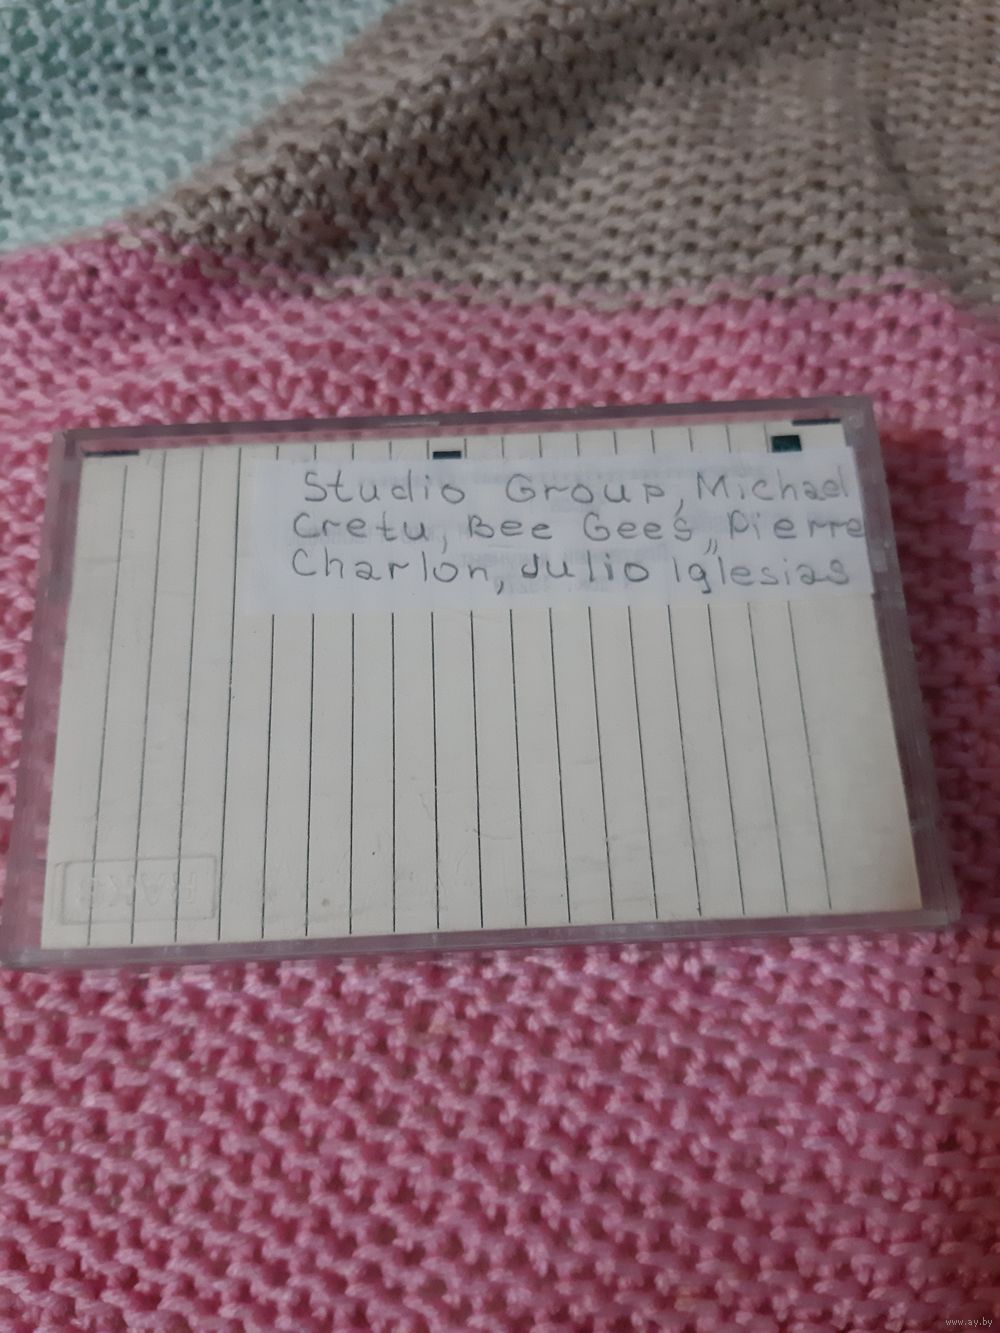 Studio Group, Michael
Cretu, Bee Gees, Pierre
Charlon, Julio Iglesias
RAKS
www.ay.by